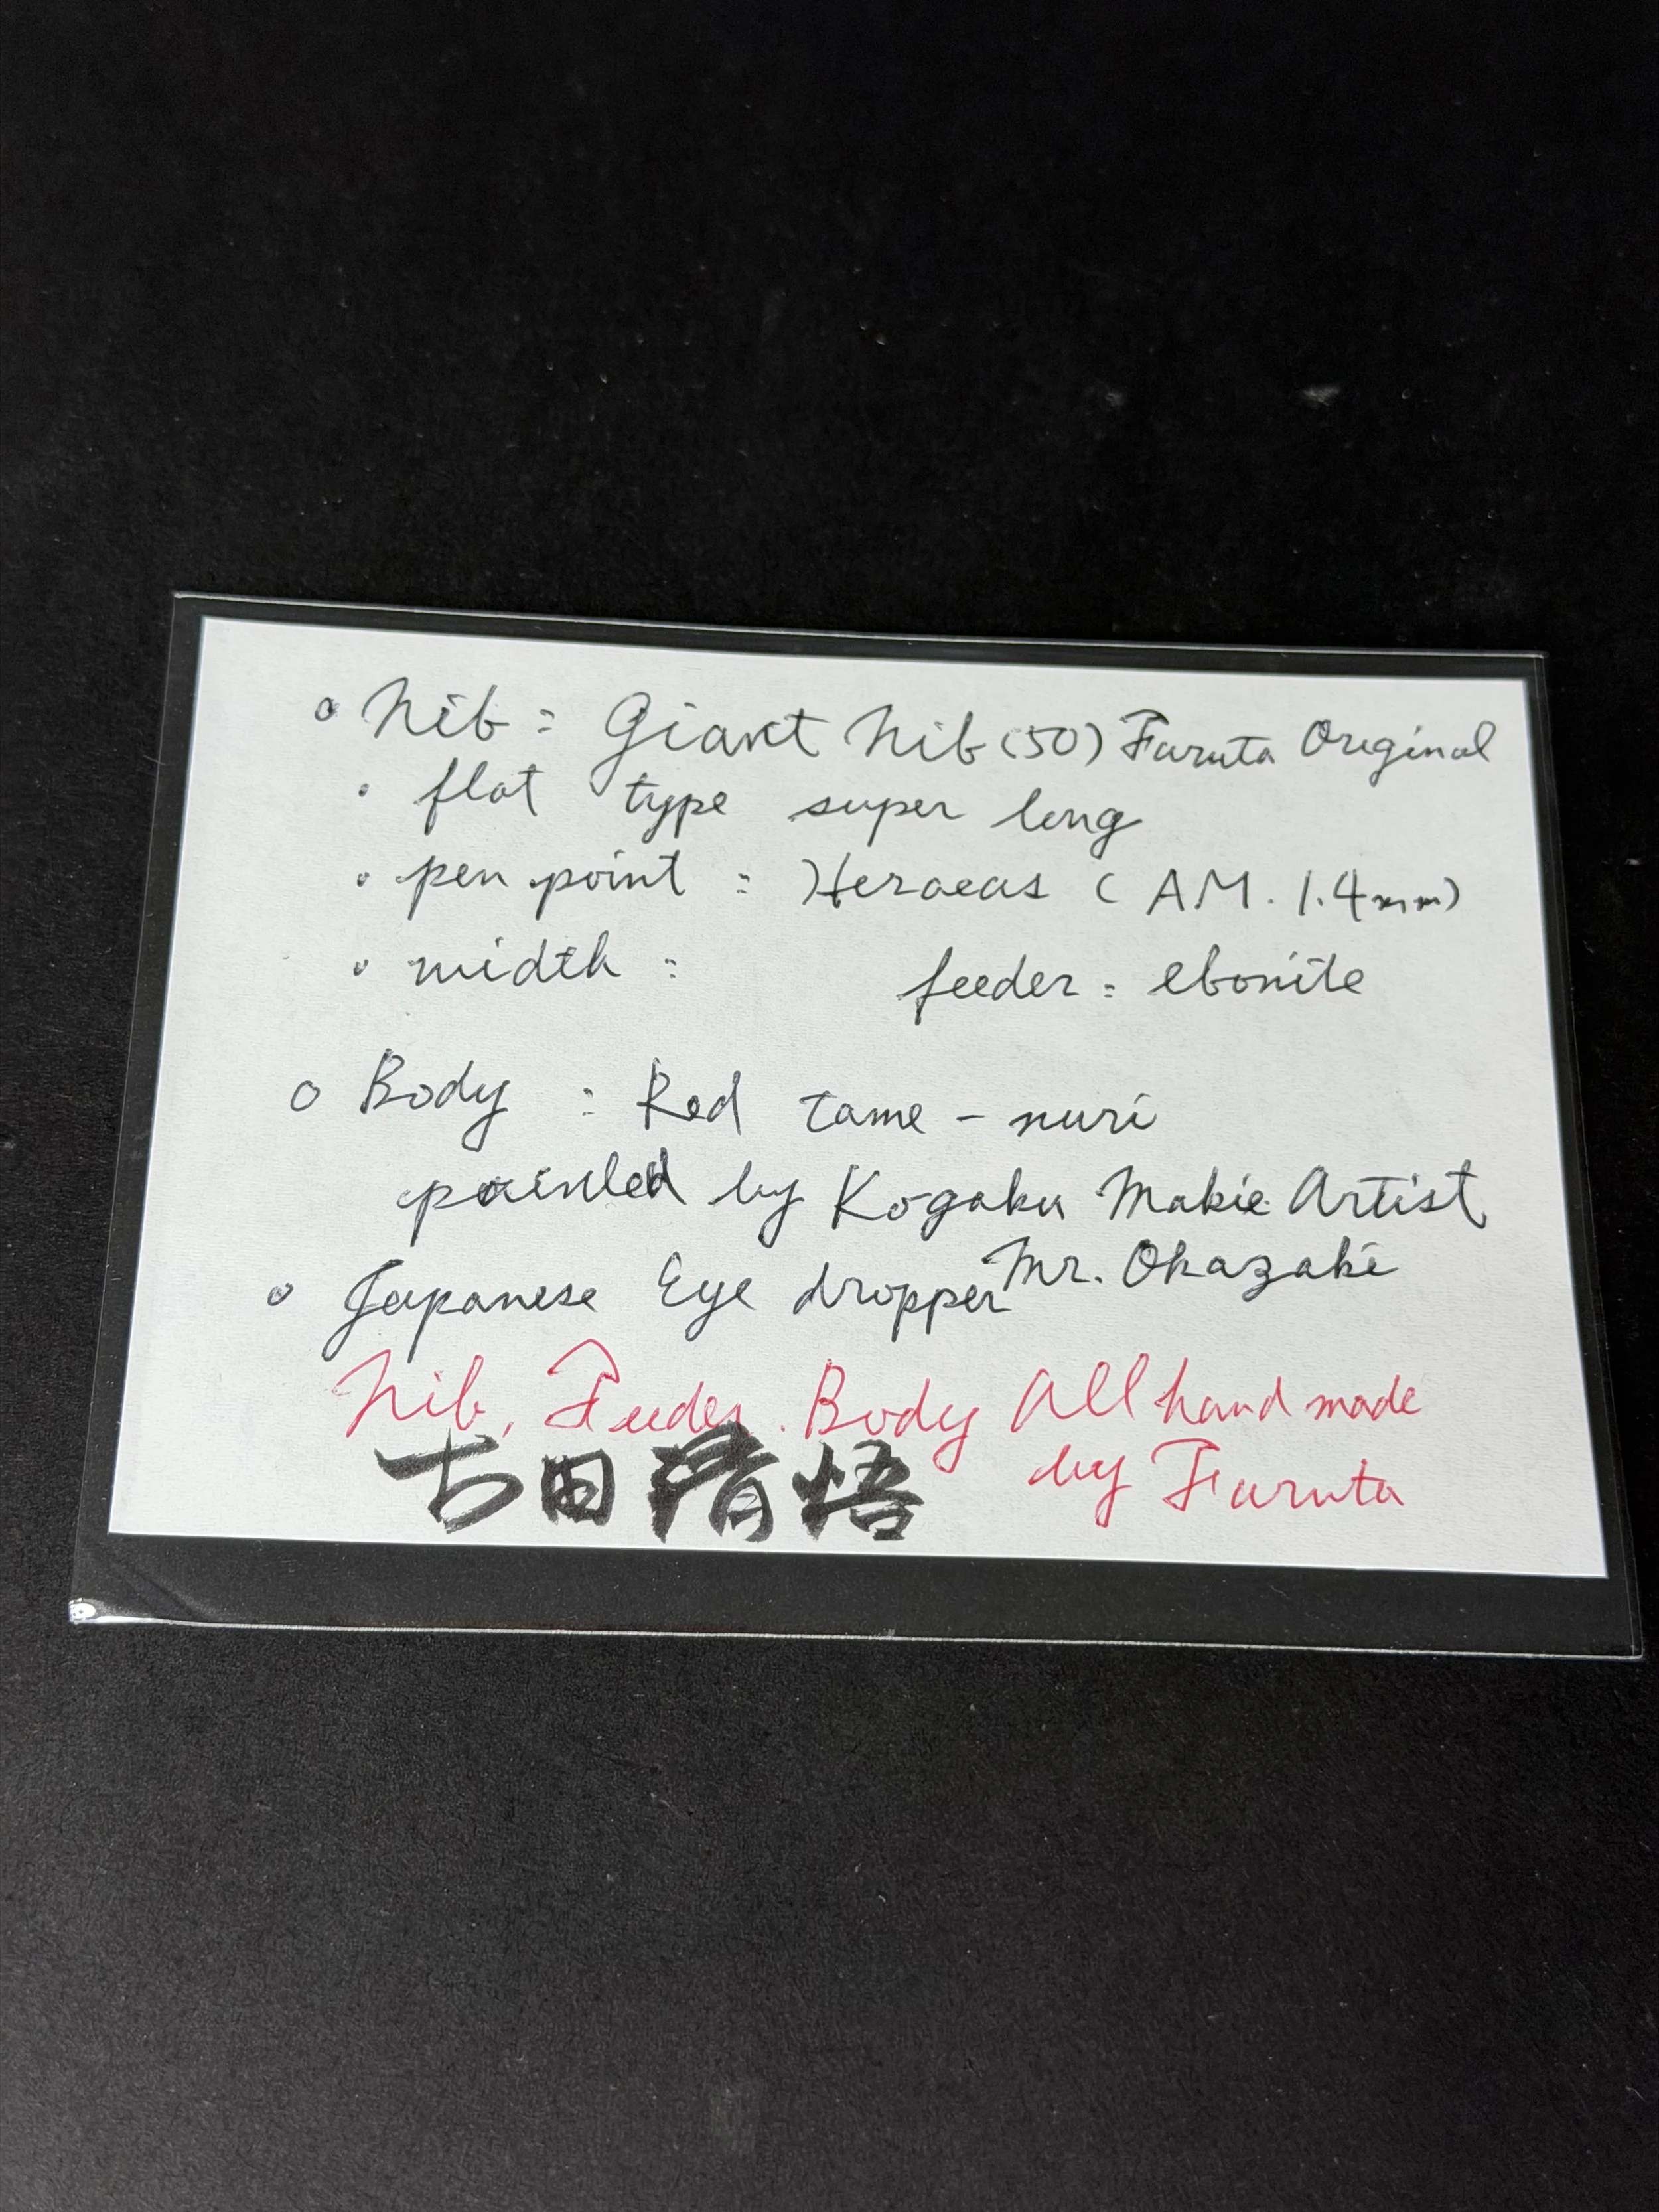 ° Nib : Giant Nib (50) Furuta Original
· flat type super long
· pen point : Heraeas (AM. 1.4mm)
· width : feeder : ebonite
○ Body : Red tame-nuri
painted by Kogaku Makie Artist
Mr. Okazaki
○ Japanese Eye dropper
Nib, Feeder. Body All hand made
by Furuta
古田清悟